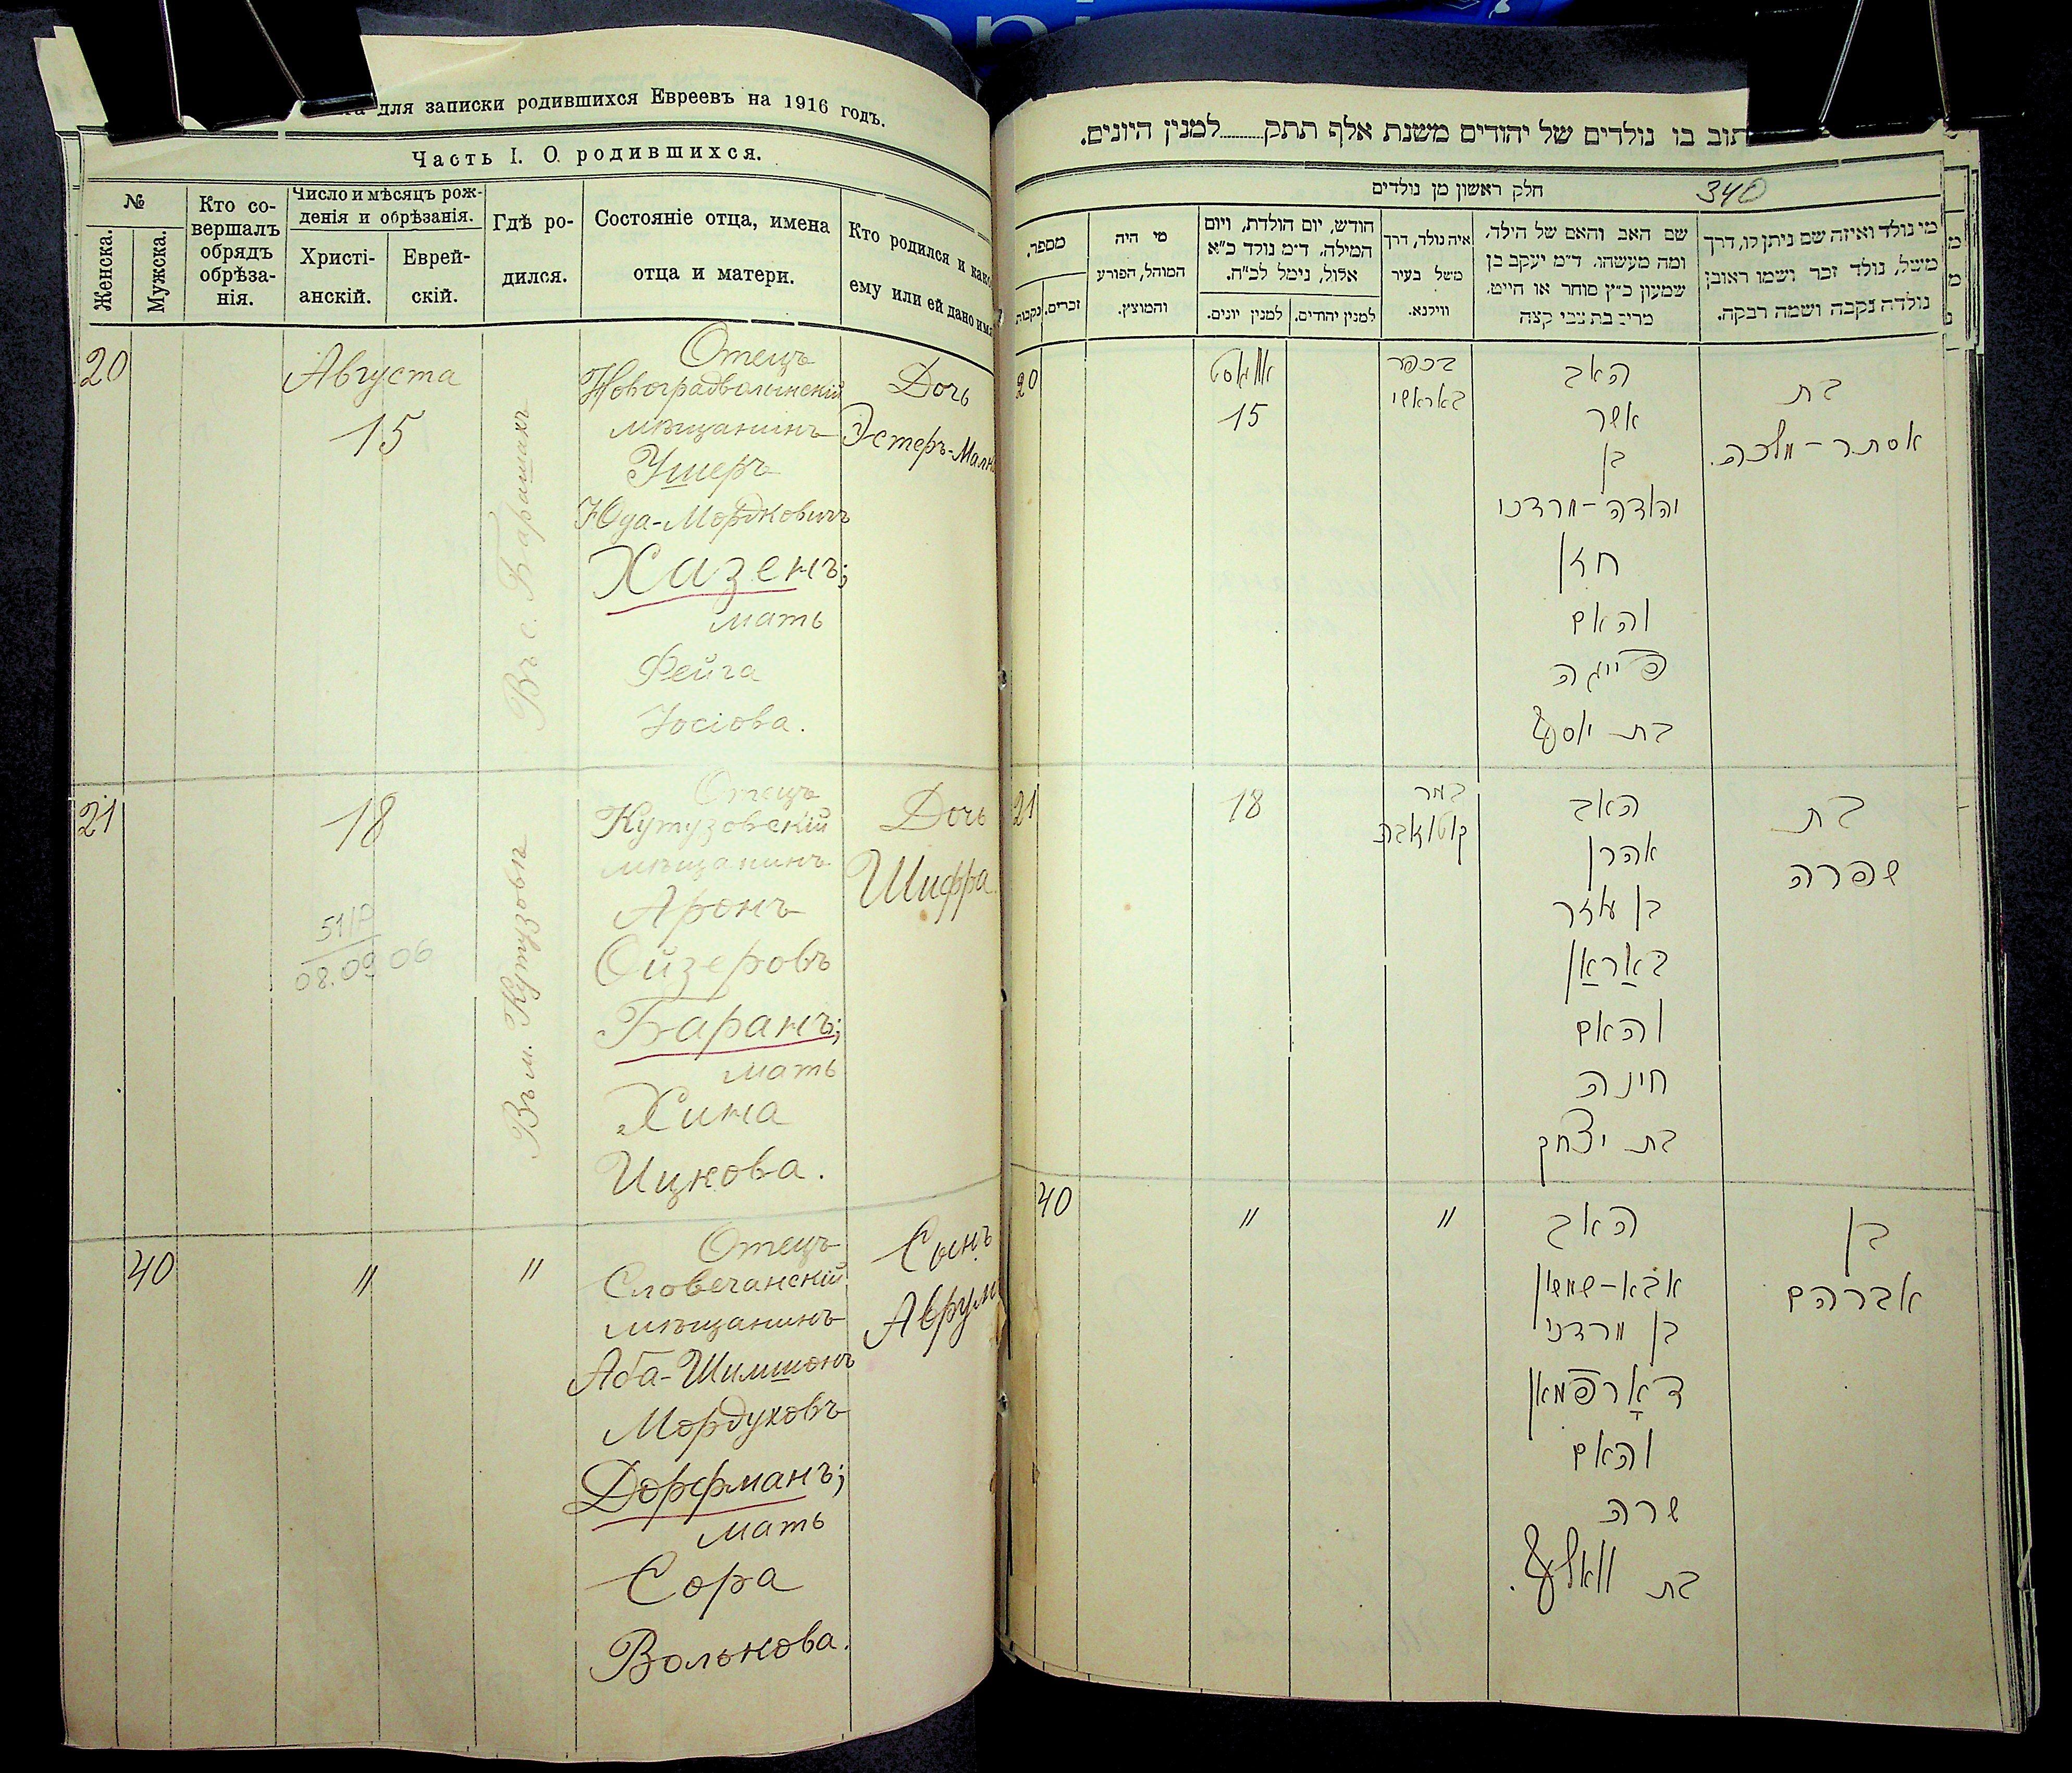 для записки родившихся Евреевъ на 1916 годъ.
Часть I. О родившихся.
№
Женска.
Мужска.
Кто со-
вершалъ
обрядъ
обрѣза-
нія.
Число и мѣсяцъ рож-
денія и обрѣзанія.
Христі-
анскій.
Еврей-
скій.
Гдѣ ро-
дился.
Состояніе отца, имена
отца и матери.
Кто родился и како
ему или ей дано имя
20
Августа
15
Въ с. Барашахъ
Отецъ
Новоградволынскій
мѣщанинъ
Ушеръ
Юда-Мордковичъ
Хазенъ;
мать
Фейга
Іосіова.
Дочь
Эстеръ-Малк
21
18
51/Р
08.09 06
Въ м. Кутузовѣ
Отецъ
Кутузовскій
мѣщанинъ
Аронъ
Ойзеровъ
Баранъ;
мать
Хина
Ицкова.
Дочь
Шифра.
40
"
"
Отецъ
Словечанскій
мѣщанинъ
Аба-Шимшонъ
Мордуховъ
Дорфманъ;
мать
Сора
Волькова.
Сынъ
Аврум
תוב בו נולדים של יהודים משנת אלף תתק......למנין היונים.
חלק ראשון מן נולדים
340
מי נולד ואיזה שם ניתן לו, דרך
משל, נולד זכר ושמו ראובן
נולדה נקבה ושמה רבקה.
שם האב והאם של הילד,
ומה מעשהו, ד״מ יעקב בן
שמעון כ״ץ סוחר או חייט,
מרים בת צבי קצה
איה נולד, דרך
משל בעיר
ווילנא.
חודש, יום הולדת, ויום
המילה, ד״מ נולד כ״א
אלול, נימל לכ״ח.
למנין יהודים.
למנין יונים.
מי היה
המוהל, הפורע
והמוצץ.
מספר.
זכרים.
נקבות
20
אווגוסט
15
בכפר
באראשי
האב
אשר
בן
יהודה-מרדכי
חזן
והאם
פייגה
בת יוסף
בת
אסתר-מלכה.
21
18
במר
קוטוזובה
האב
אהרן
בן עוזר
באַראַן
והאם
חינה
בת יצחק
בת
שפרה
40
"
"
האב
אבא-שמשון
בן מרדכי
דאָרפמאן
והאם
שרה
בת וואלף.
בן
אברהם